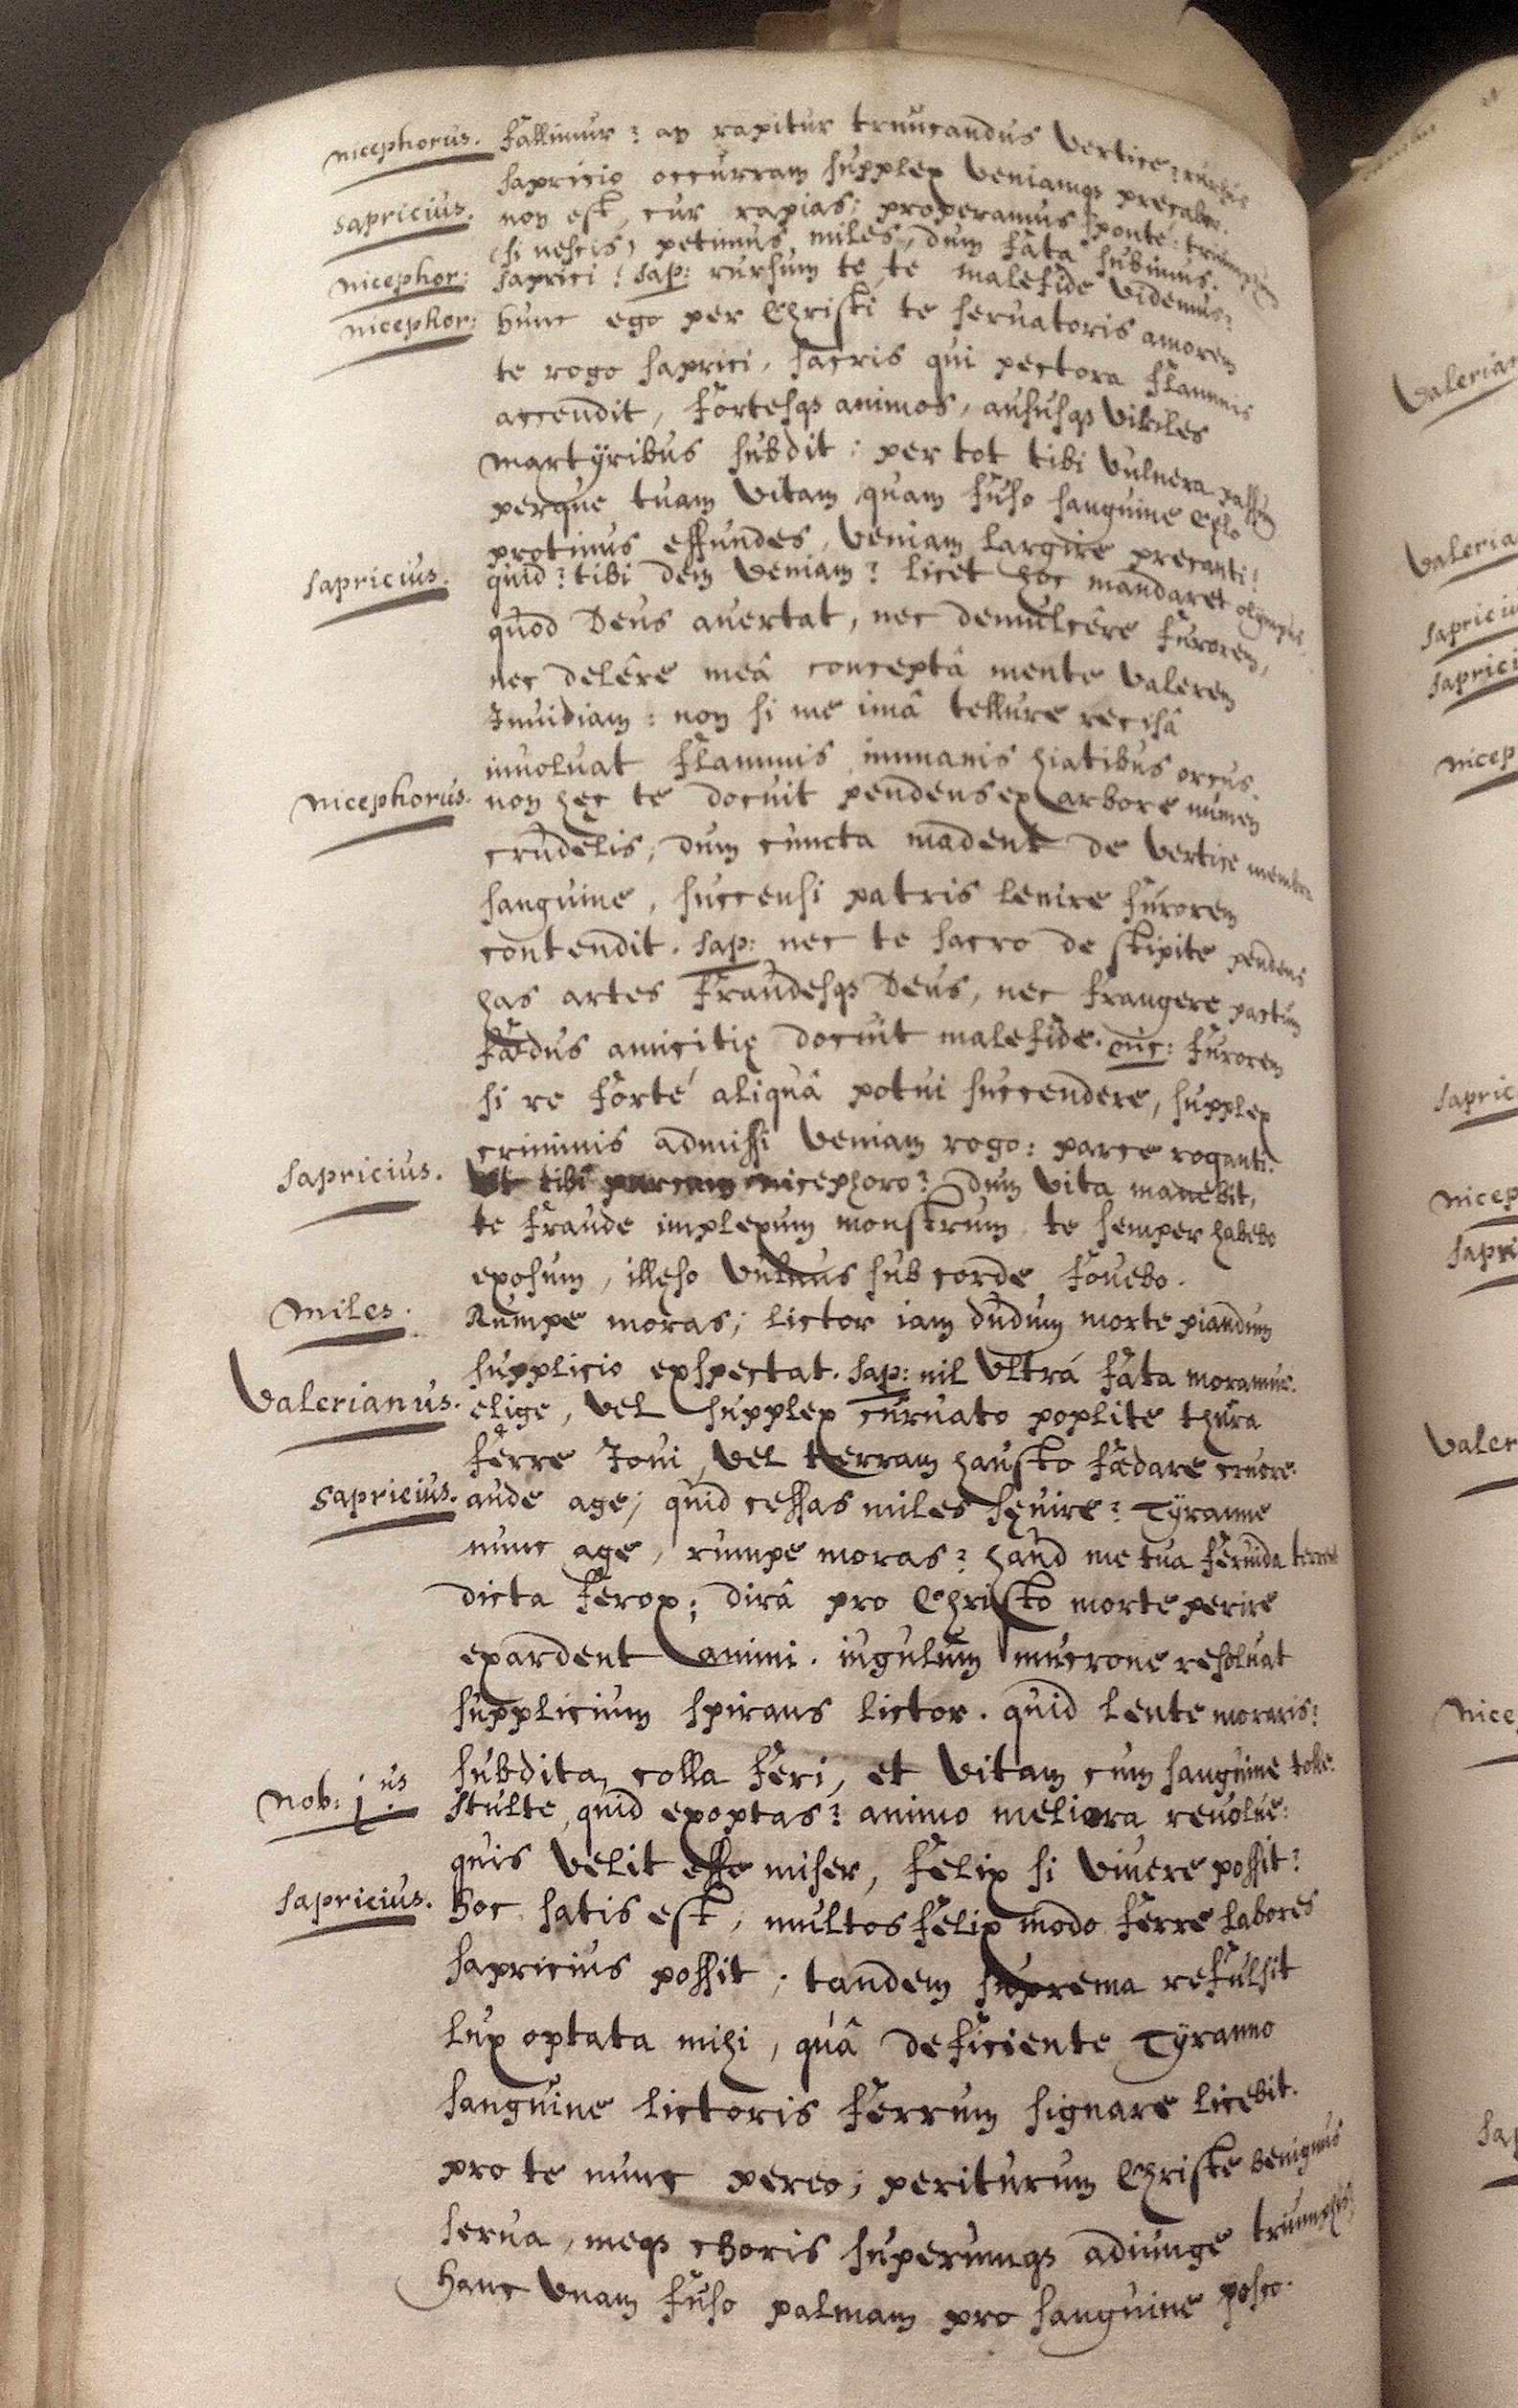 nicephorus. Fallimur? an rapitur truncandus vertice? rursus
Sapricio occurram supplex veniamqꝫ precabor.
Sapricius. non est, cur rapias; properamus sponte: triumphum
(si nescis) petimus, miles, dum fata subimus.
nicephor: Saprici! Sap: rursum te, te malefide videmus?
nicephor: Hunc ego per Christi te servatoris amorem
te rogo Saprici, sacris qui pectora flammis
accendit, fortesqꝫ animos, aususqꝫ viriles
martÿribus subdit; per tot tibi vulnera passum
perque tuam vitam, quam fuso sanguine cælo
protinus effundes, veniam largire precanti!
Sapricius. quid? tibi dem veniam? licet hoc mandaret olympus
quod Deus avertat, nec demulcêre furorem,
nec delêre meâ conceptâ mente valerem
Invidiam: non si me imâ tellure recisâ
involvat flammis, immanis hiatibus orcus.
nicephorus. non hęc te docuit pendens ex arbore numen
crudelis; dum cuncta madent de vertice membra
sanguine, succensi patris lenire furorem
contendit. Sap: nec te sacro de stipite pendens
has artes fraudesqꝫ Deus, nec frangere pactum
fædus amicitię docuit malefide. nic: furorem
si re forté aliquâ potui succendere, supplex
criminis admissi veniam rogo: parce roganti.
Sapricius. Ut tibi parcam nicephoro? dum vita manebit,
te fraude implexum monstrum, te semper habebo
exosum, illęso vulnus sub corde fovebo.
Miles. Rumpe moras; lictor iam dudum morte piandum
supplicio exspectat. Sap: nil ultrá fata moramur.
Valerianus. elige, vel supplex curvato poplite thura
ferre Jovi, vel terram hausto fædare cruore.
Sapricius. aude age; quid cessas miles sęvire? Tÿranne
nunc age, rumpe moras? haud me tua fervida terrent
dicta ferox; dirâ pro Christo morte perire
exardent animi. iugulum mucrone resolvat
supplicium spirans lictor. quid lente moraris?
subdita colla feri, et vitam cum sanguine tolle.
Nob: j.us Stulte, quid exoptas? animo meliora revolve:
quis velit esse miser, felix si vivere possit?
Sapricius. Hoc satis est; multos felix modo ferre labores
Sapricius possit; tandem suprema refulsit
lux optata mihi, quâ deficiente Tÿranno
sanguine lictoris ferrum signare licebit.
pro te nunc pereo; periturum Christe benignus
serva, meqꝫ choris superumqꝫ adiunge triumphis,
Hanc unam fuso palmam pro sanguine posco.
Valerian
Valeria
Sapriciu
Saprici
nicep
Sapric
nicep
Sapr
Valer
Nice
Sap